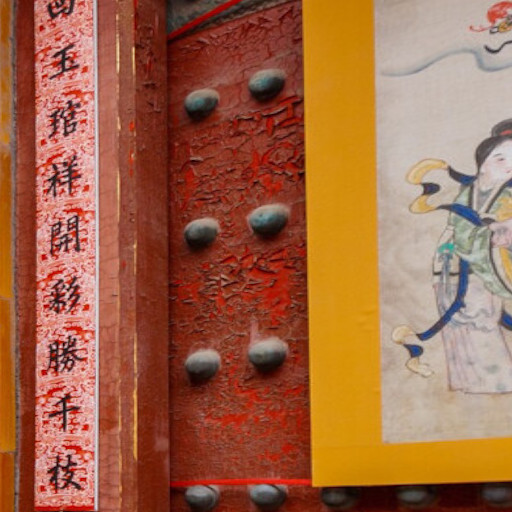 玉琯祥開彩勝千枝